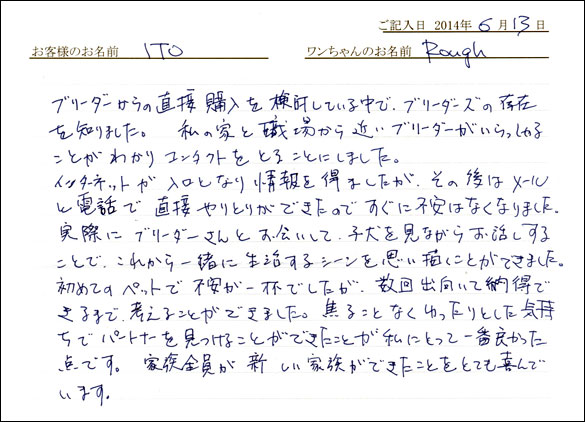 ご記入日 2014年 6月 13日
お客様のお名前 ITO ワンちゃんのお名前 Rough
ブリーダーからの直接購入を検討している中で、ブリーダーズの存在
を知りました。 私の家と職場から近いブリーダーがいらっしゃる
ことがわかりコンタクトをとることにしました。
インターネットが入口となり情報を得ましたが、その後はメール
と電話で直接やりとりができたのですぐに不安はなくなりました。
実際にブリーダーさんとお会いして、子犬を見ながらお話しする
ことで、これから一緒に生活するシーンを思い描くことができました。
初めてのペットで不安が一杯でしたが、数回出向いて納得で
きるまで、考えることができました。焦ることなくゆったりとした気持
ちでパートナーを見つけることができたことが私にとって一番良かった
点です。 家族全員が新しい家族ができたことをとても喜んで
います。